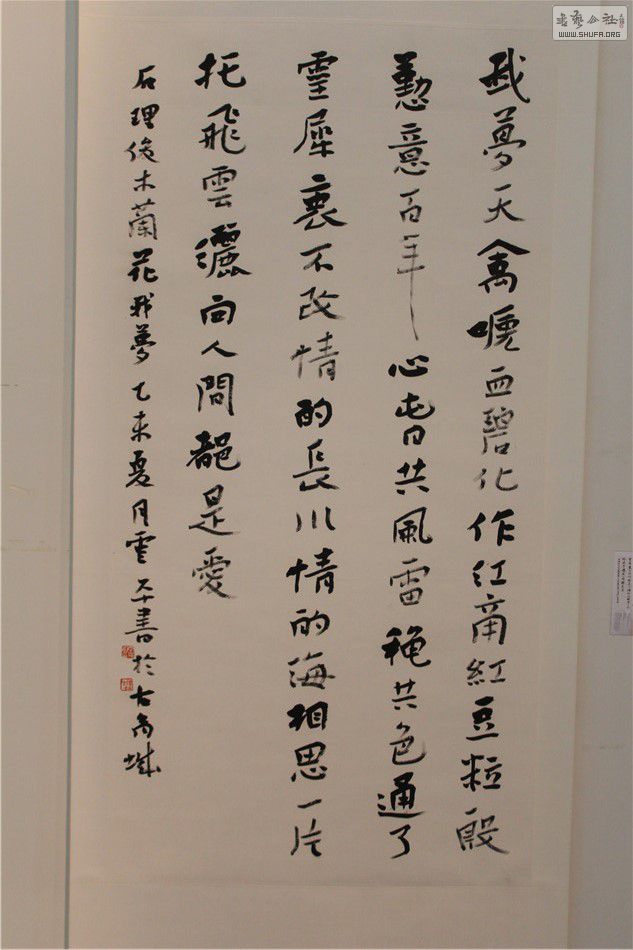 我夢天禽嚥血碧化作紅紅豆粒殷
懃意百年心旾共風雷穐共色通了
靈犀衷不改情的長川情的海相思一片
托飛雲灑向人間都是愛
石理俊木蘭花我夢乙未夏月雲平書於古禹城
書藝公社
WWW.SHUFA.ORG